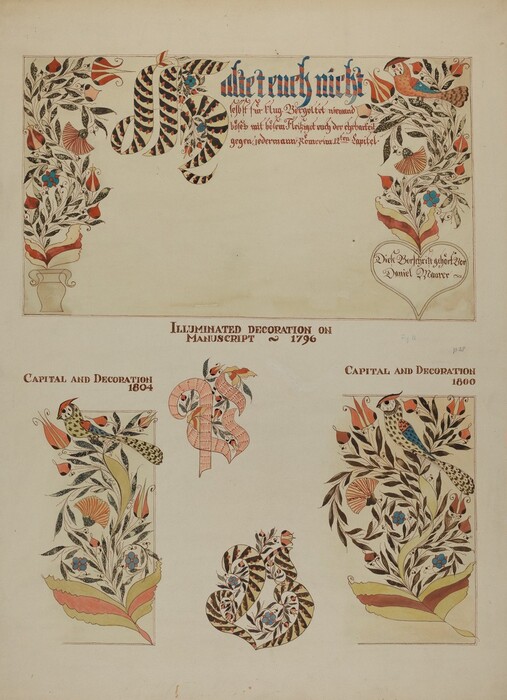 Haltet euch nicht
selbst für klug Vergeltet niemand
böses mit bösem Fleisiget euch der ehrbarkeit
gegen jedermann Römer im 12ten Capitel
Vorschrift gehört Vor
Daniel Maurer ~
ILLUMINATED DECORATION ON
MANUSCRIPT ~ 1796
CAPITAL AND DECORATION
1804
CAPITAL AND DECORATION
1800